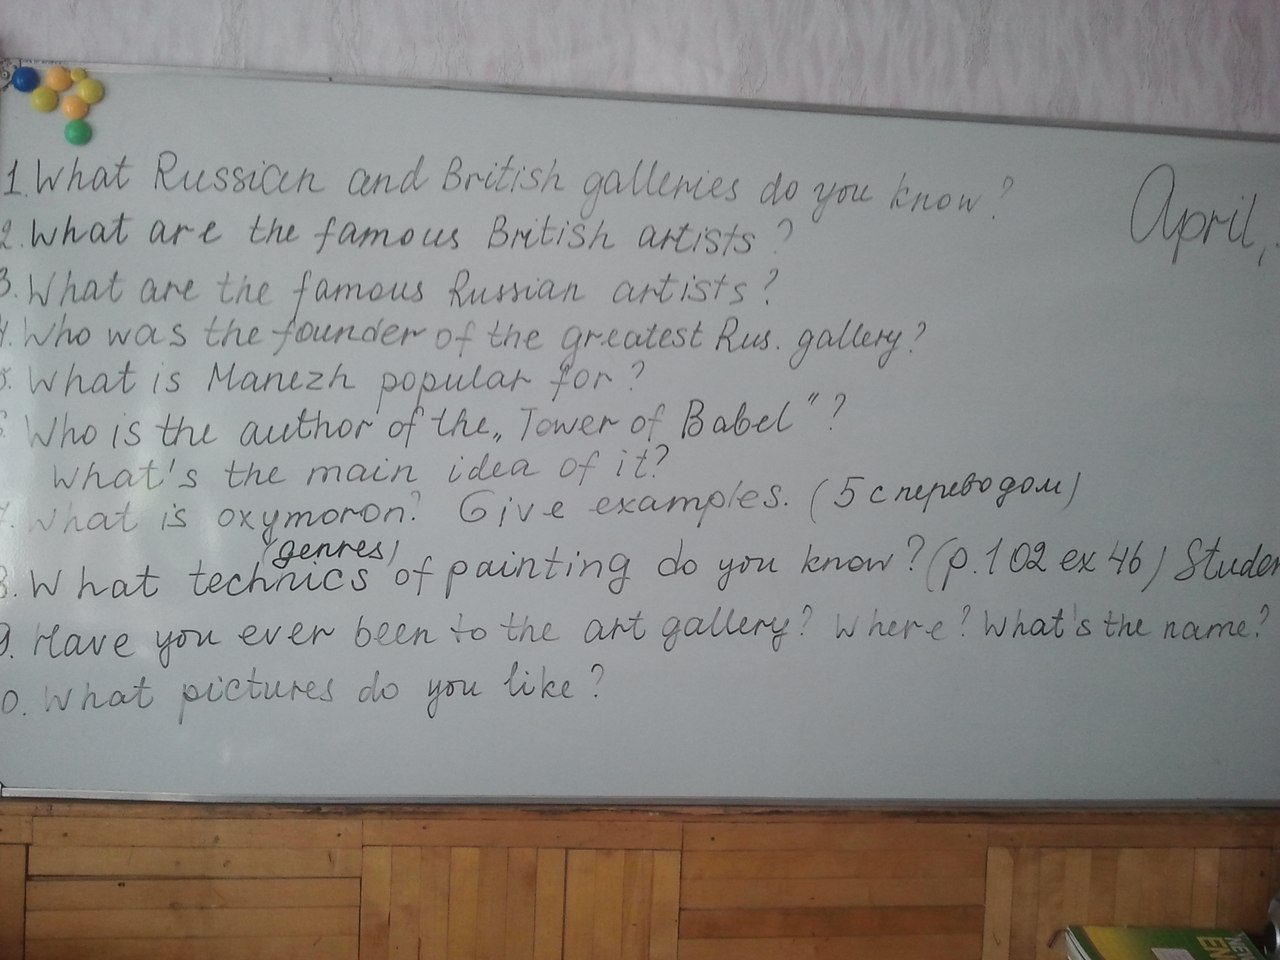 1. What Russian and British galleries do you know?
April,
2. What are the famous British artists?
3. What are the famous Russian artists?
4. Who was the founder of the greatest Rus. gallery?
5. What is Manezh popular for?
6. Who is the author of the „Tower of Babel"?
What's the main idea of it?
7. What is oxymoron? Give examples. (5 с переводом)
(genres)
8. What technics of painting do you know? (p. 102 ex 46) Studen
9. Have you ever been to the art gallery? Where? What's the name?
0. What pictures do you like?
NEW
EN